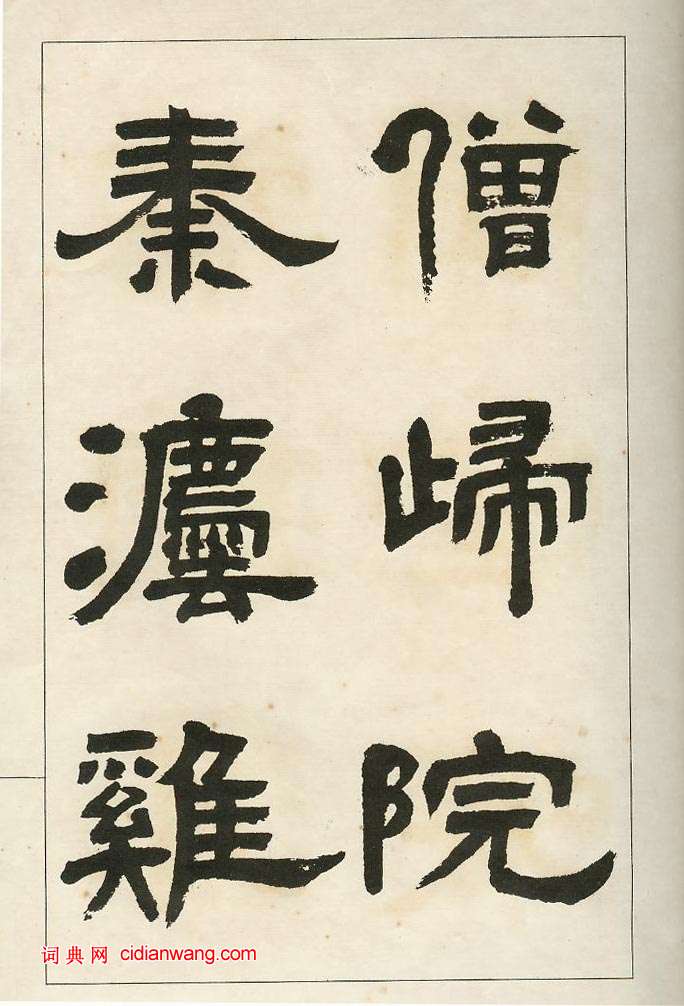 僧歸院
秦雞
词典网 cidianwang.com